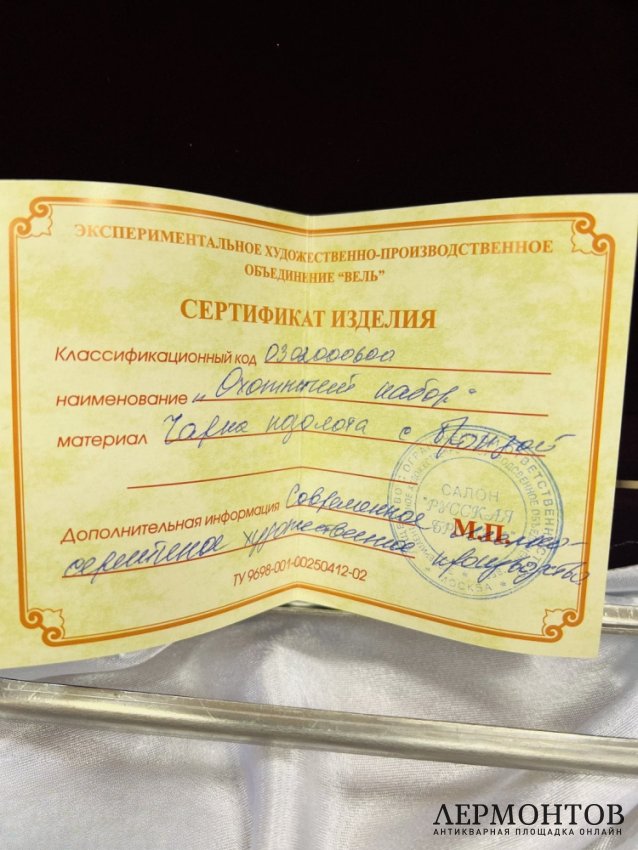 ЭКСПЕРИМЕНТАЛЬНОЕ ХУДОЖЕСТВЕННО-ПРОИЗВОДСТВЕННОЕ
ОБЪЕДИНЕНИЕ "ВЕЛЬ"
СЕРТИФИКАТ ИЗДЕЛИЯ
Классификационный код 0302000600
наименование "Охотничий набор"
материал Чарка с бронзой
САЛОН
РУССКАЯ
М.П.
Дополнительная информация Современное
художественное производство
МОСКВА
ТУ 9698-001-00250412-02
ЛЕРМОНТОВ
АНТИКВАРНАЯ ПЛОЩАДКА ОНЛАЙН